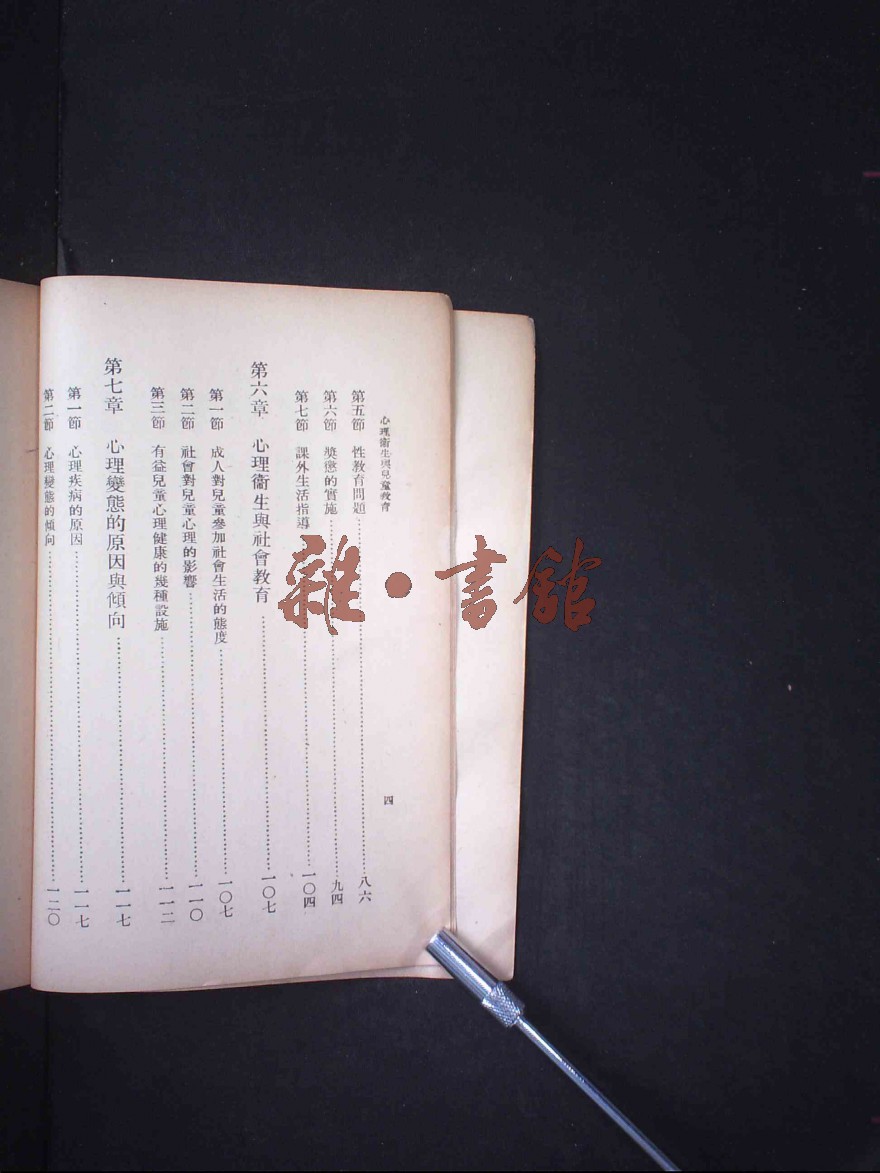 心理衞生與兒童教育
四
第五節　性教育問題……八六
第六節　獎懲的實施……九四
第七節　課外生活指導……一〇四
第六章　心理衞生與社會教育……一〇七
第一節　成人對兒童參加社會生活的態度……一〇七
第二節　社會對兒童心理的影響……一一〇
第三節　有益兒童心理健康的幾種設施……一一二
第七章　心理變態的原因與傾向……一一七
第一節　心理疾病的原因……一一七
第二節　心理變態的傾向……一二〇
雜•書館